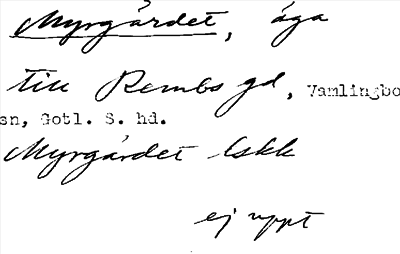 Myrgårdet, äga
till Rembs gd, Vamlingbo
sn, Gotl. S. hd.
Myrgårdet lskk
ej uppt